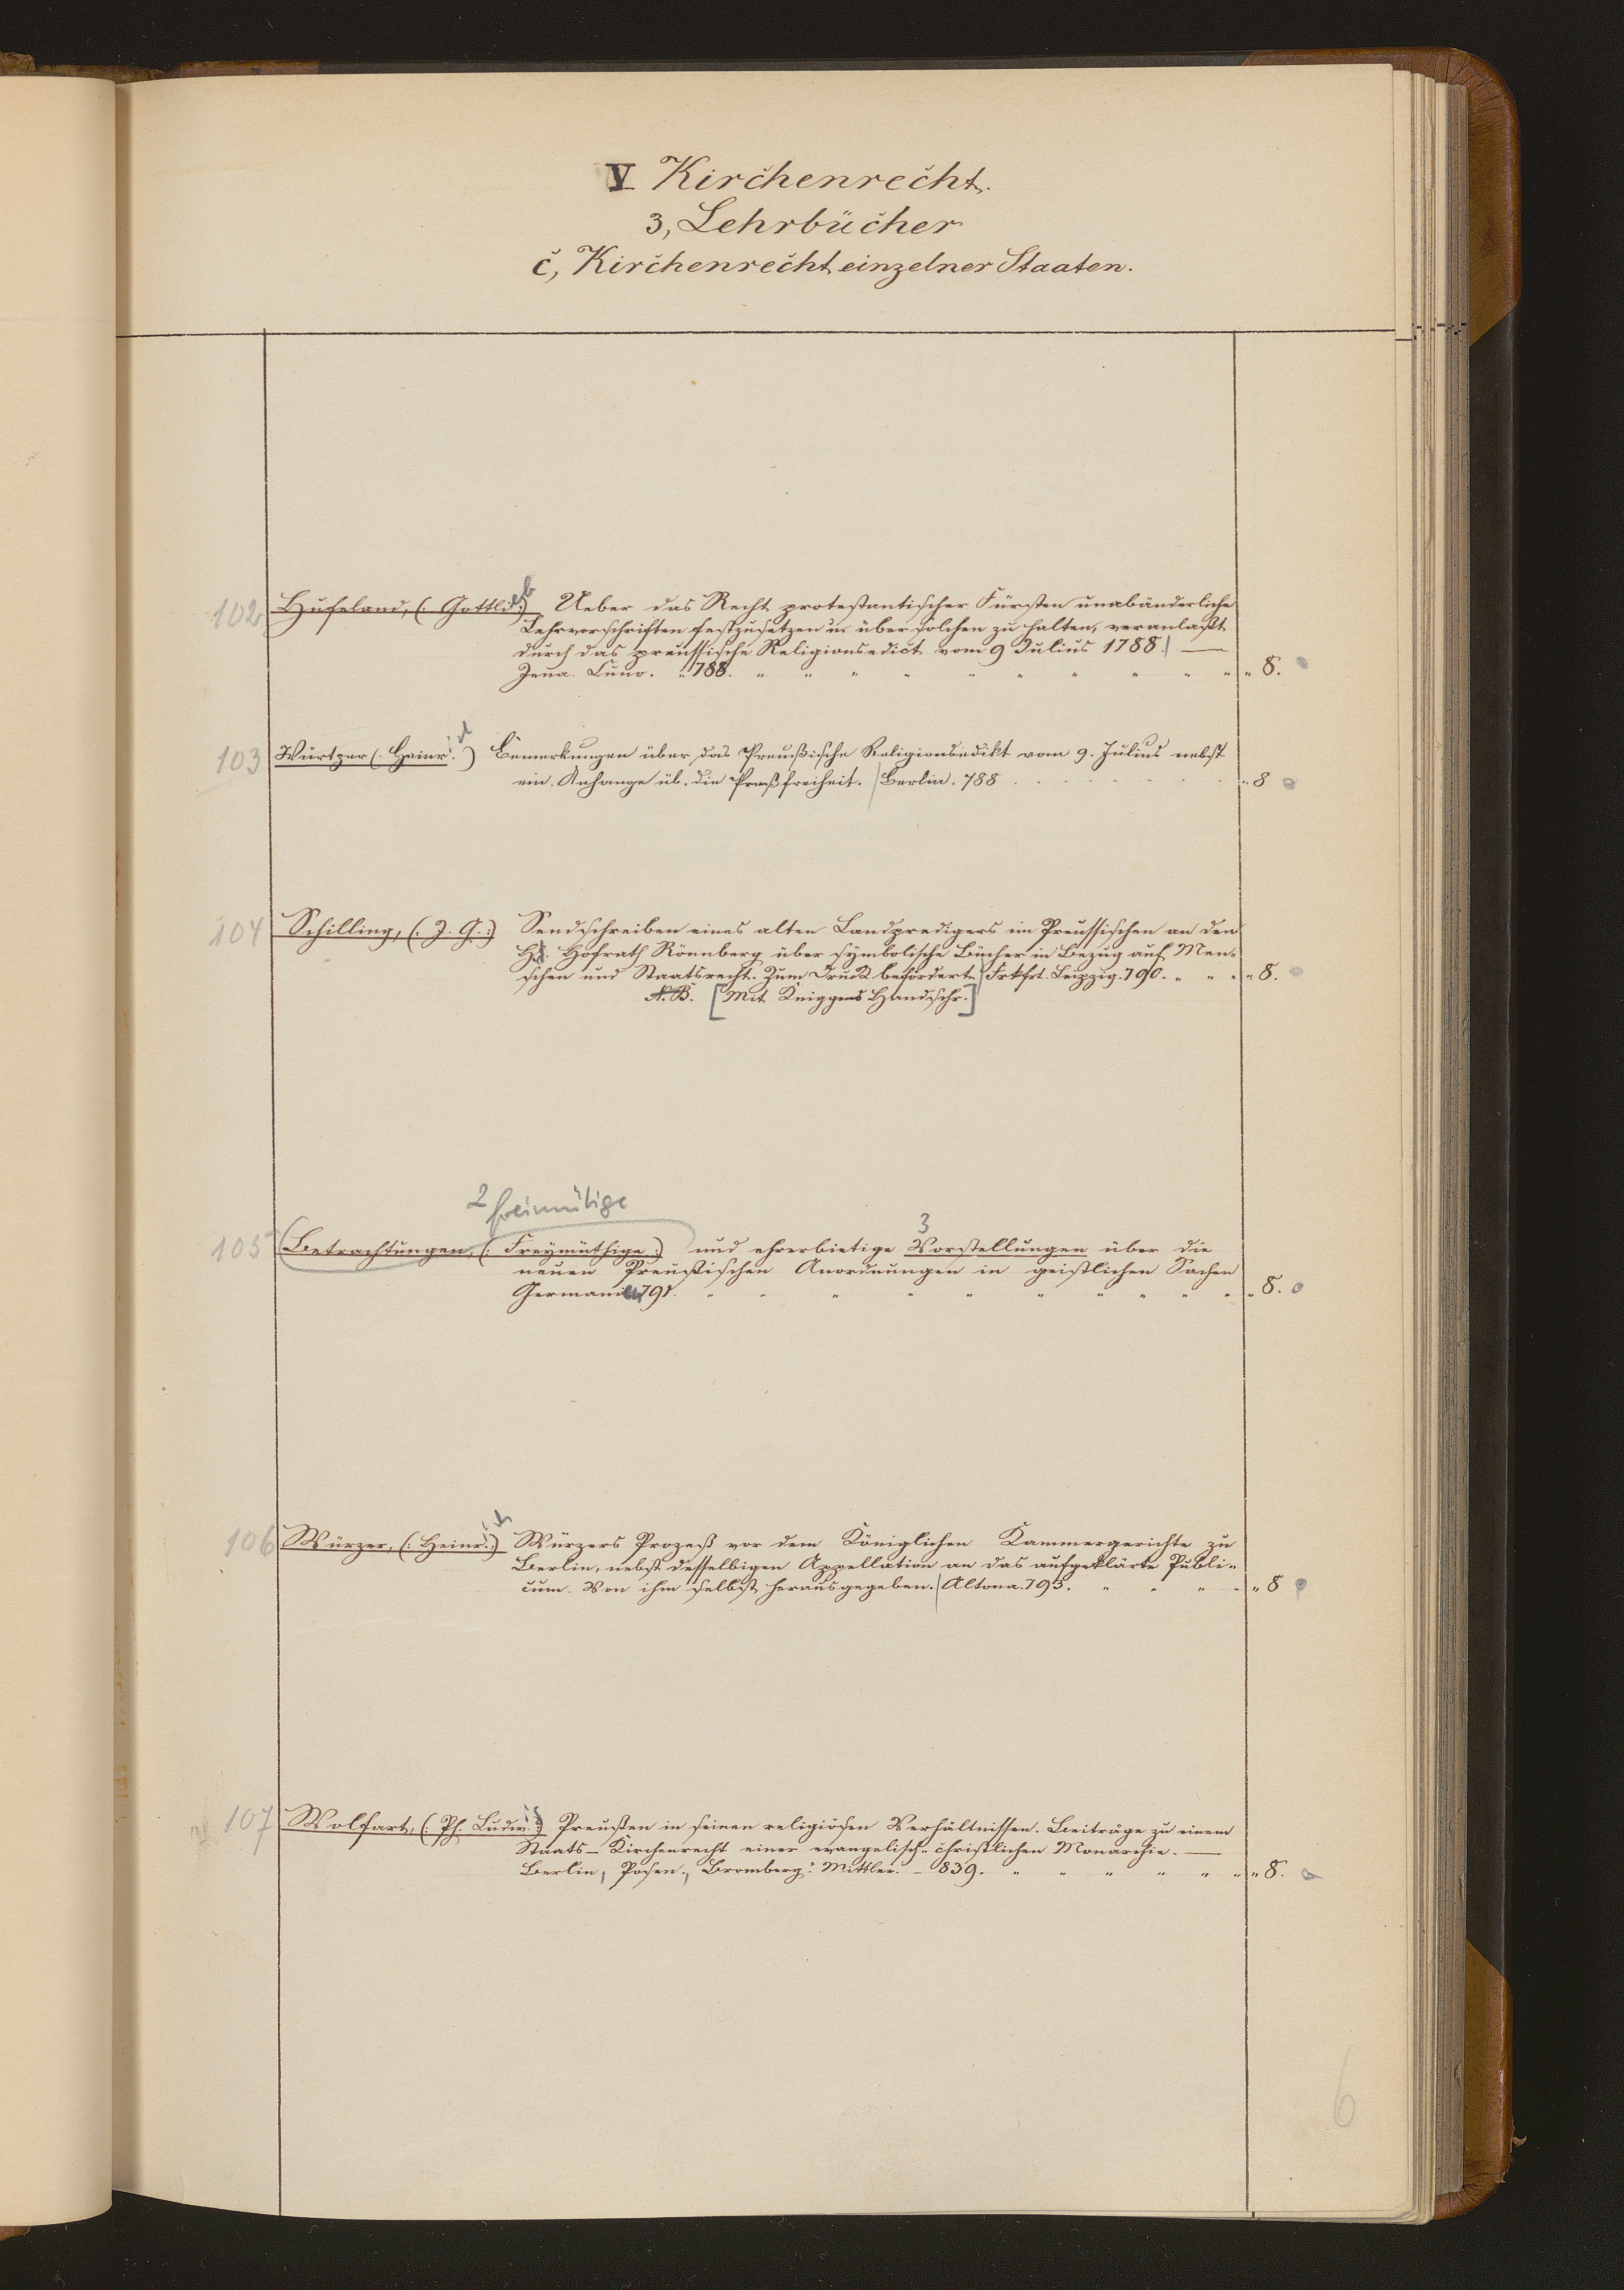 V Kirchenrecht.
3, Lehrbücher
c, Kirchenrecht einzelner Staaten.
102 Hufeland, (: Gottlieb :) Ueber das Recht protestantischer Fürsten unabänderliche
Lehrvorschriften festzusetzen u. über solchen zu halten, veranlaßt
durch das preussische Religionsedict vom 9 Julius 1788. | —
Jena. Cuno. " 788. " " " " " " " " " " " 8.
103 Würtzer (: Heinrich :) Bemerkungen über das Preußische Religionsedikt vom 9. Julius nebst
ein. Anhange üb. die Preßfreiheit. | Berlin. 788 . . . . . . . " 8
104 Schilling, (: J. G. :) Sendschreiben eines alten Landpredigers im Preussischen an den
H. Hofrath Rönnberg über symbolische Bücher in Bezug auf Men-
schen und Staatsrecht. Zum Druck befördert. | Frkfrt. Leipzig. 790. " " " " 8.
N.B. [Mit Kniggens Handschr.]
2 freimütige
3
105 (Betrachtungen, (: Freymüthige :) und ehrerbietige Vorstellungen über die
neuen Preußischen Anordnungen in geistlichen Sachen
Germanien 791. " " " " " " " " " " " 8.
106 Würzer, (: Heinrich :) Würzers Prozeß vor dem Königlichen Kammergerichte zu
Berlin, nebst desselbigen Appellation an das aufgeklärte Publi-
cum. Von ihm selbst herausgegeben. | Altona. 793. " " " " " 8
107 Wolfart, (: Ph. Ludwig :) Preußen in seinen religiösen Verhältnissen. Beiträge zu einem
Staats- Kirchenrecht einer evangelisch-christlichen Monarchie. —
Berlin, Posen, Bromberg: Mittler. - 839. " " " " " " " 8.
6